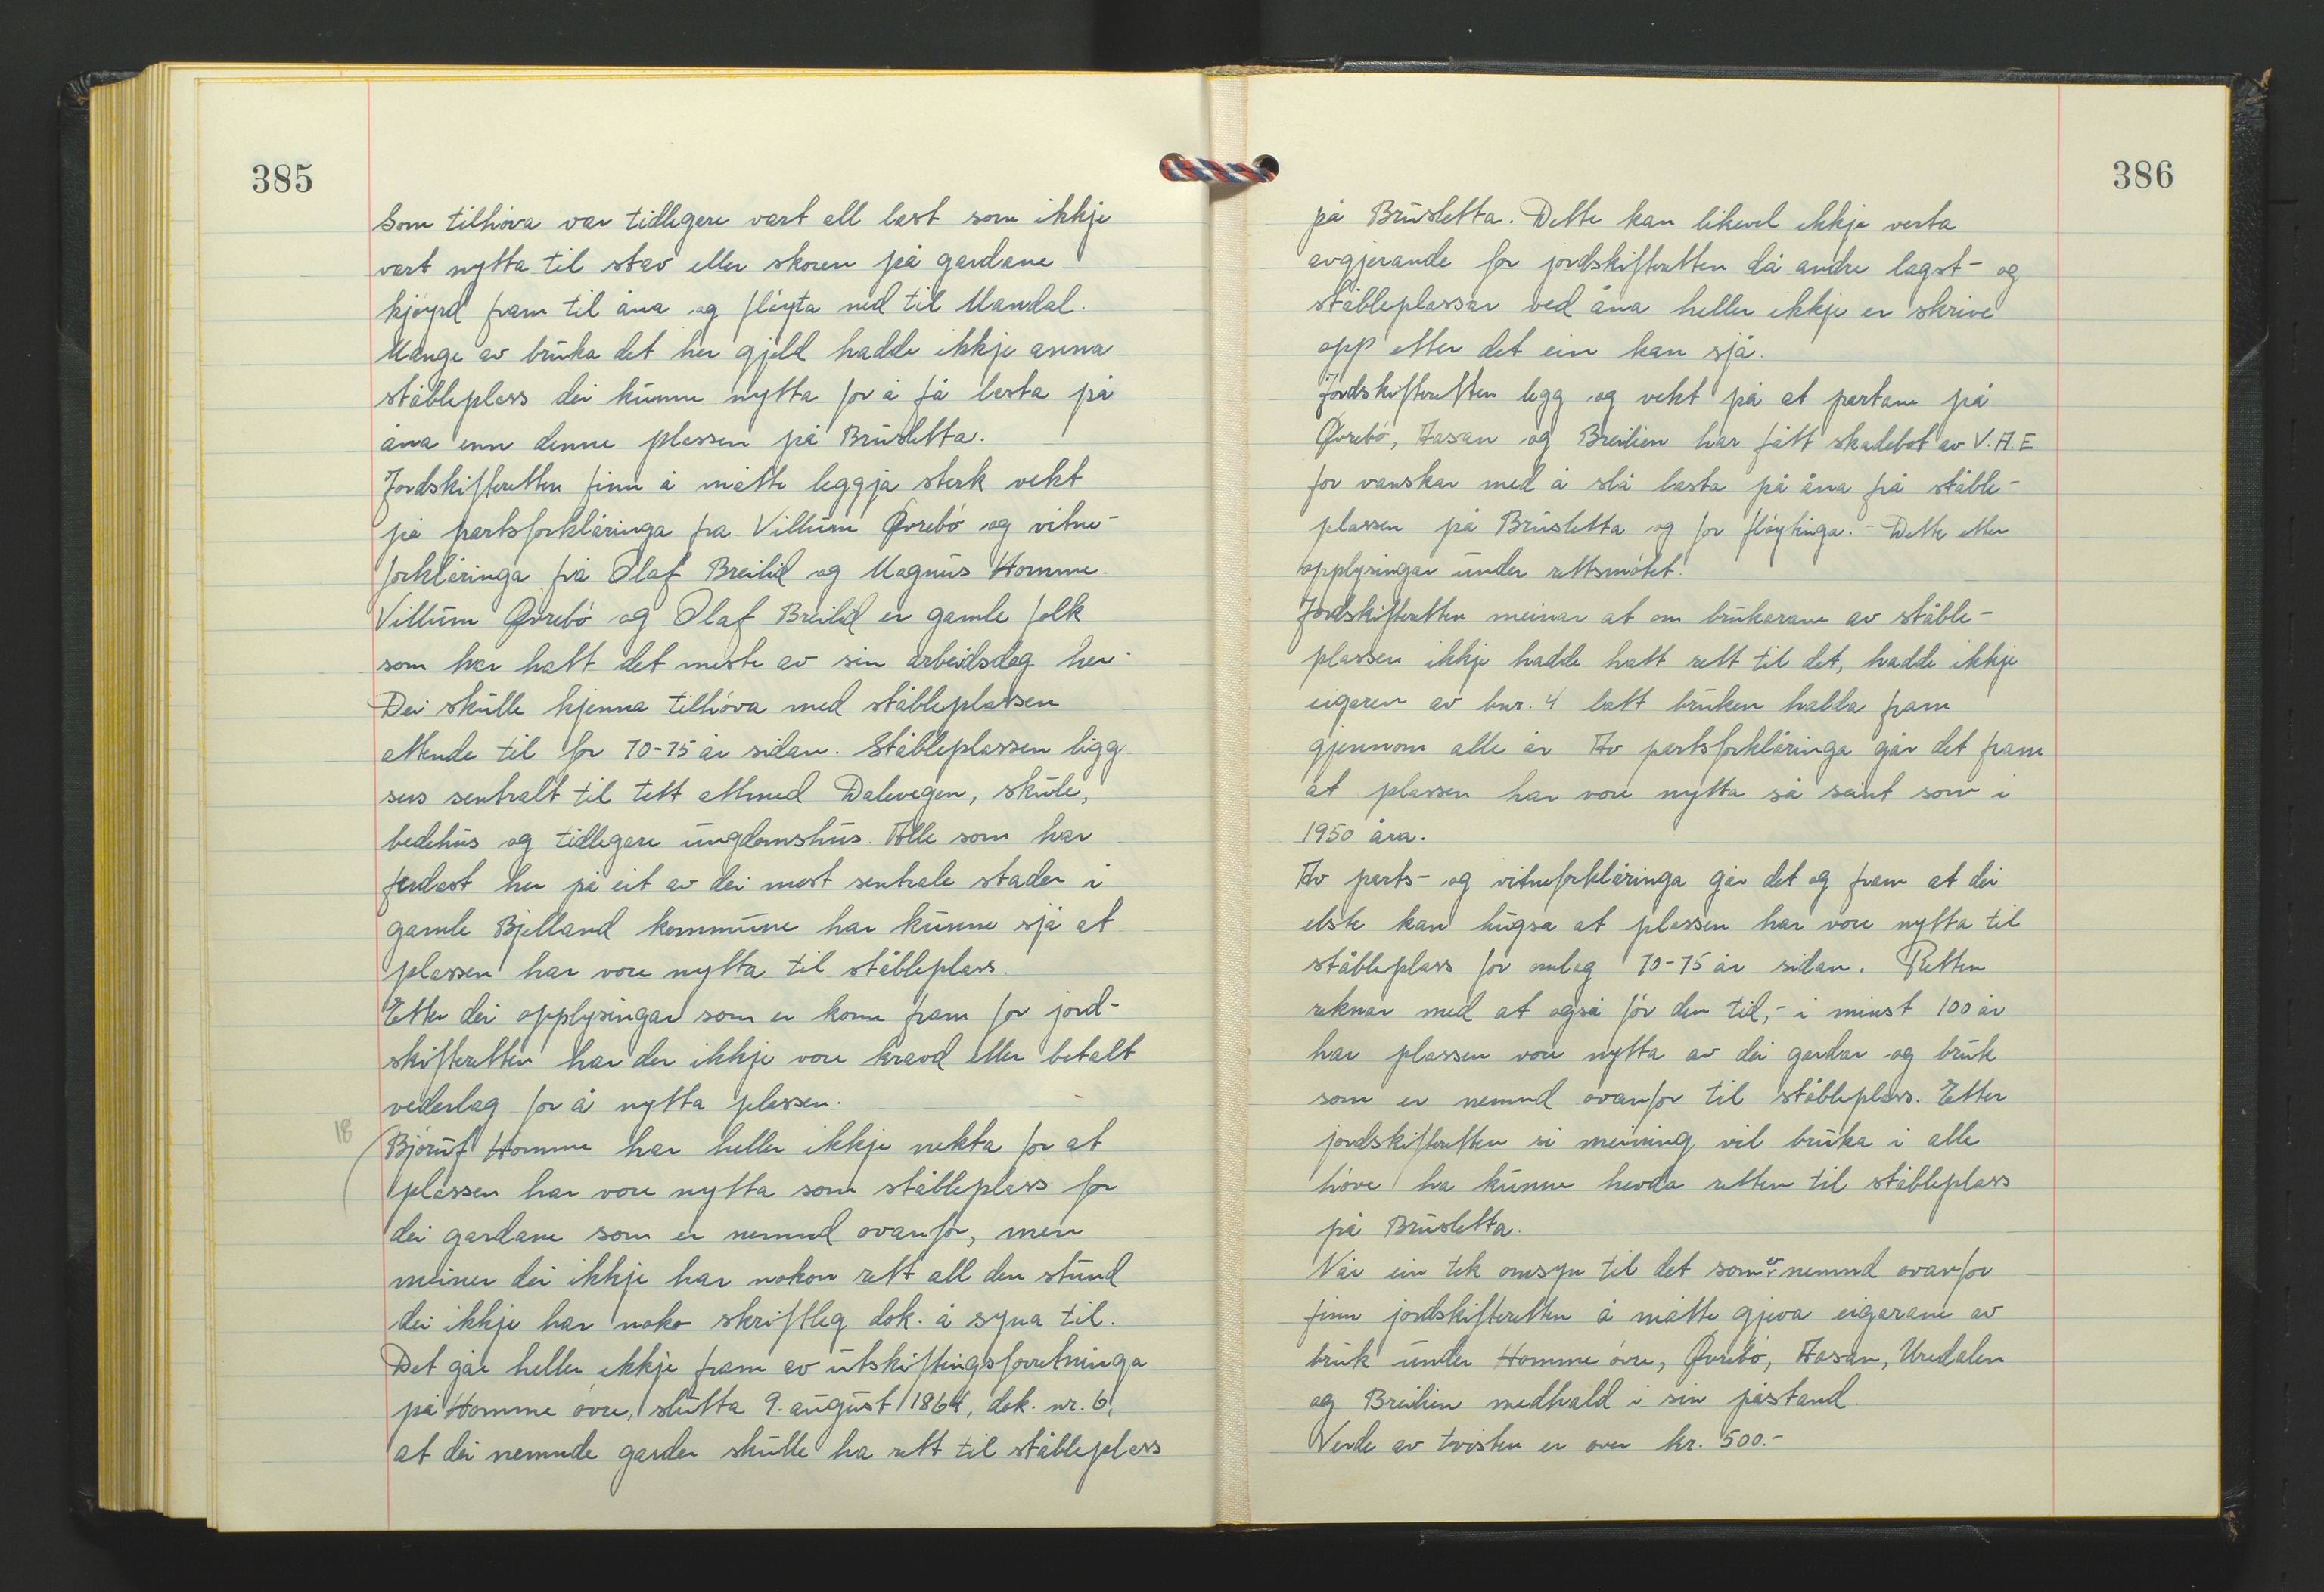 385
Som tilhøva var tidlegere vart all last som ikkje
vart nytta til stav eller skoren på gardane
kjøyrd fram til åna og fløyta ned til Mandal.
Mange av bruka det her gjeld hadde ikkje anna
ståbleplass dei kunne nytta for å få lasta på
åna enn denne plassen på Brusletta.
Jordskifteretten finn å måtte leggja sterk vekt
på partsforklåringa fra Villum Øvrebø og vitne-
forklåringa frå Olaf Breilid og Magnus Homme.
Villum Øvrebø og Olaf Breilid er gamle folk
som har hatt det meste av sin arbeidsdag her.
Dei skulle kjenna tilhøva med ståbleplassen
attende til for 70-75 år sidan. Ståbleplassen ligg
sers sentralt til tett attmed Dalevegen, skule,
bedehus og tidlegare ungdomshus. Alle som har
ferdast her på eit av dei mest sentrale stader i
gamle Bjelland kommune har kunne sjå at
plassen har vore nytta til ståbleplass.
Etter dei opplysingar som er kome fram for jord-
skifteretten har der ikkje vore kravd eller betalt
vederlag for å nytta plassen.
18
Bjørulf Homme har heller ikkje nekta for at
plassen har vore nytta som ståbleplass for
dei gardane som er nemnd ovanfor, men
meiner dei ikkje har nokon rett all den stund
dei ikkje har noko skriftleg dok. å syna til.
Det går heller ikkje fram av utskiftingsforretninga
på Homme øvre, slutta 9. august 1864, dok. nr. 6,
at dei nemnde garder skulle ha rett til ståbleplass
386
på Brusletta. Dette kan likevel ikkje verta
avgjerande for jordskifteretten då andre lagst- og
ståbleplassar ved åna heller ikkje er skrive
opp etter det ein kan sjå.
Jordskifteretten legg og vekt på at partane på
Øvrebø, Aasan og Breilien har fått skadebot av V.A.E.
for vanskar med å slå lasta på åna frå ståble-
plassen på Brusletta og for fløytinga. - Dette etter
opplysingar under rettsmøtet.
Jordskifteretten meinar at om brukarane av ståble-
plassen ikkje hadde hatt rett til det, hadde ikkje
eigaren av bnr. 4 latt bruken halda fram
gjennom alle år. Av partsforklåringa går det fram
at plassen har vore nytta så seint som i
1950 åra.
Av parts- og vitneforklåringa går det og fram at dei
elste kan hugsa at plassen har vore nytta til
ståbleplass for omlag 70-75 år sidan. Retten
reknar med at også før den tid, - i minst 100 år
har plassen vore nytta av dei gardar og bruk
som er nemnd ovanfor til ståbleplass. Etter
jordskifteretten si meining vil bruka i alle
høve ha kunne hevda retten til ståbleplass
på Brusletta.
Når ein tek omsyn til det som er nemnd ovanfor
finn jordskifteretten å måtte gjeva eigarane av
bruk under Homme øvre, Øvrebø, Aasan, Uredalen
og Breilien medhald i sin påstand.
Verde av tvisten er over kr. 500.-